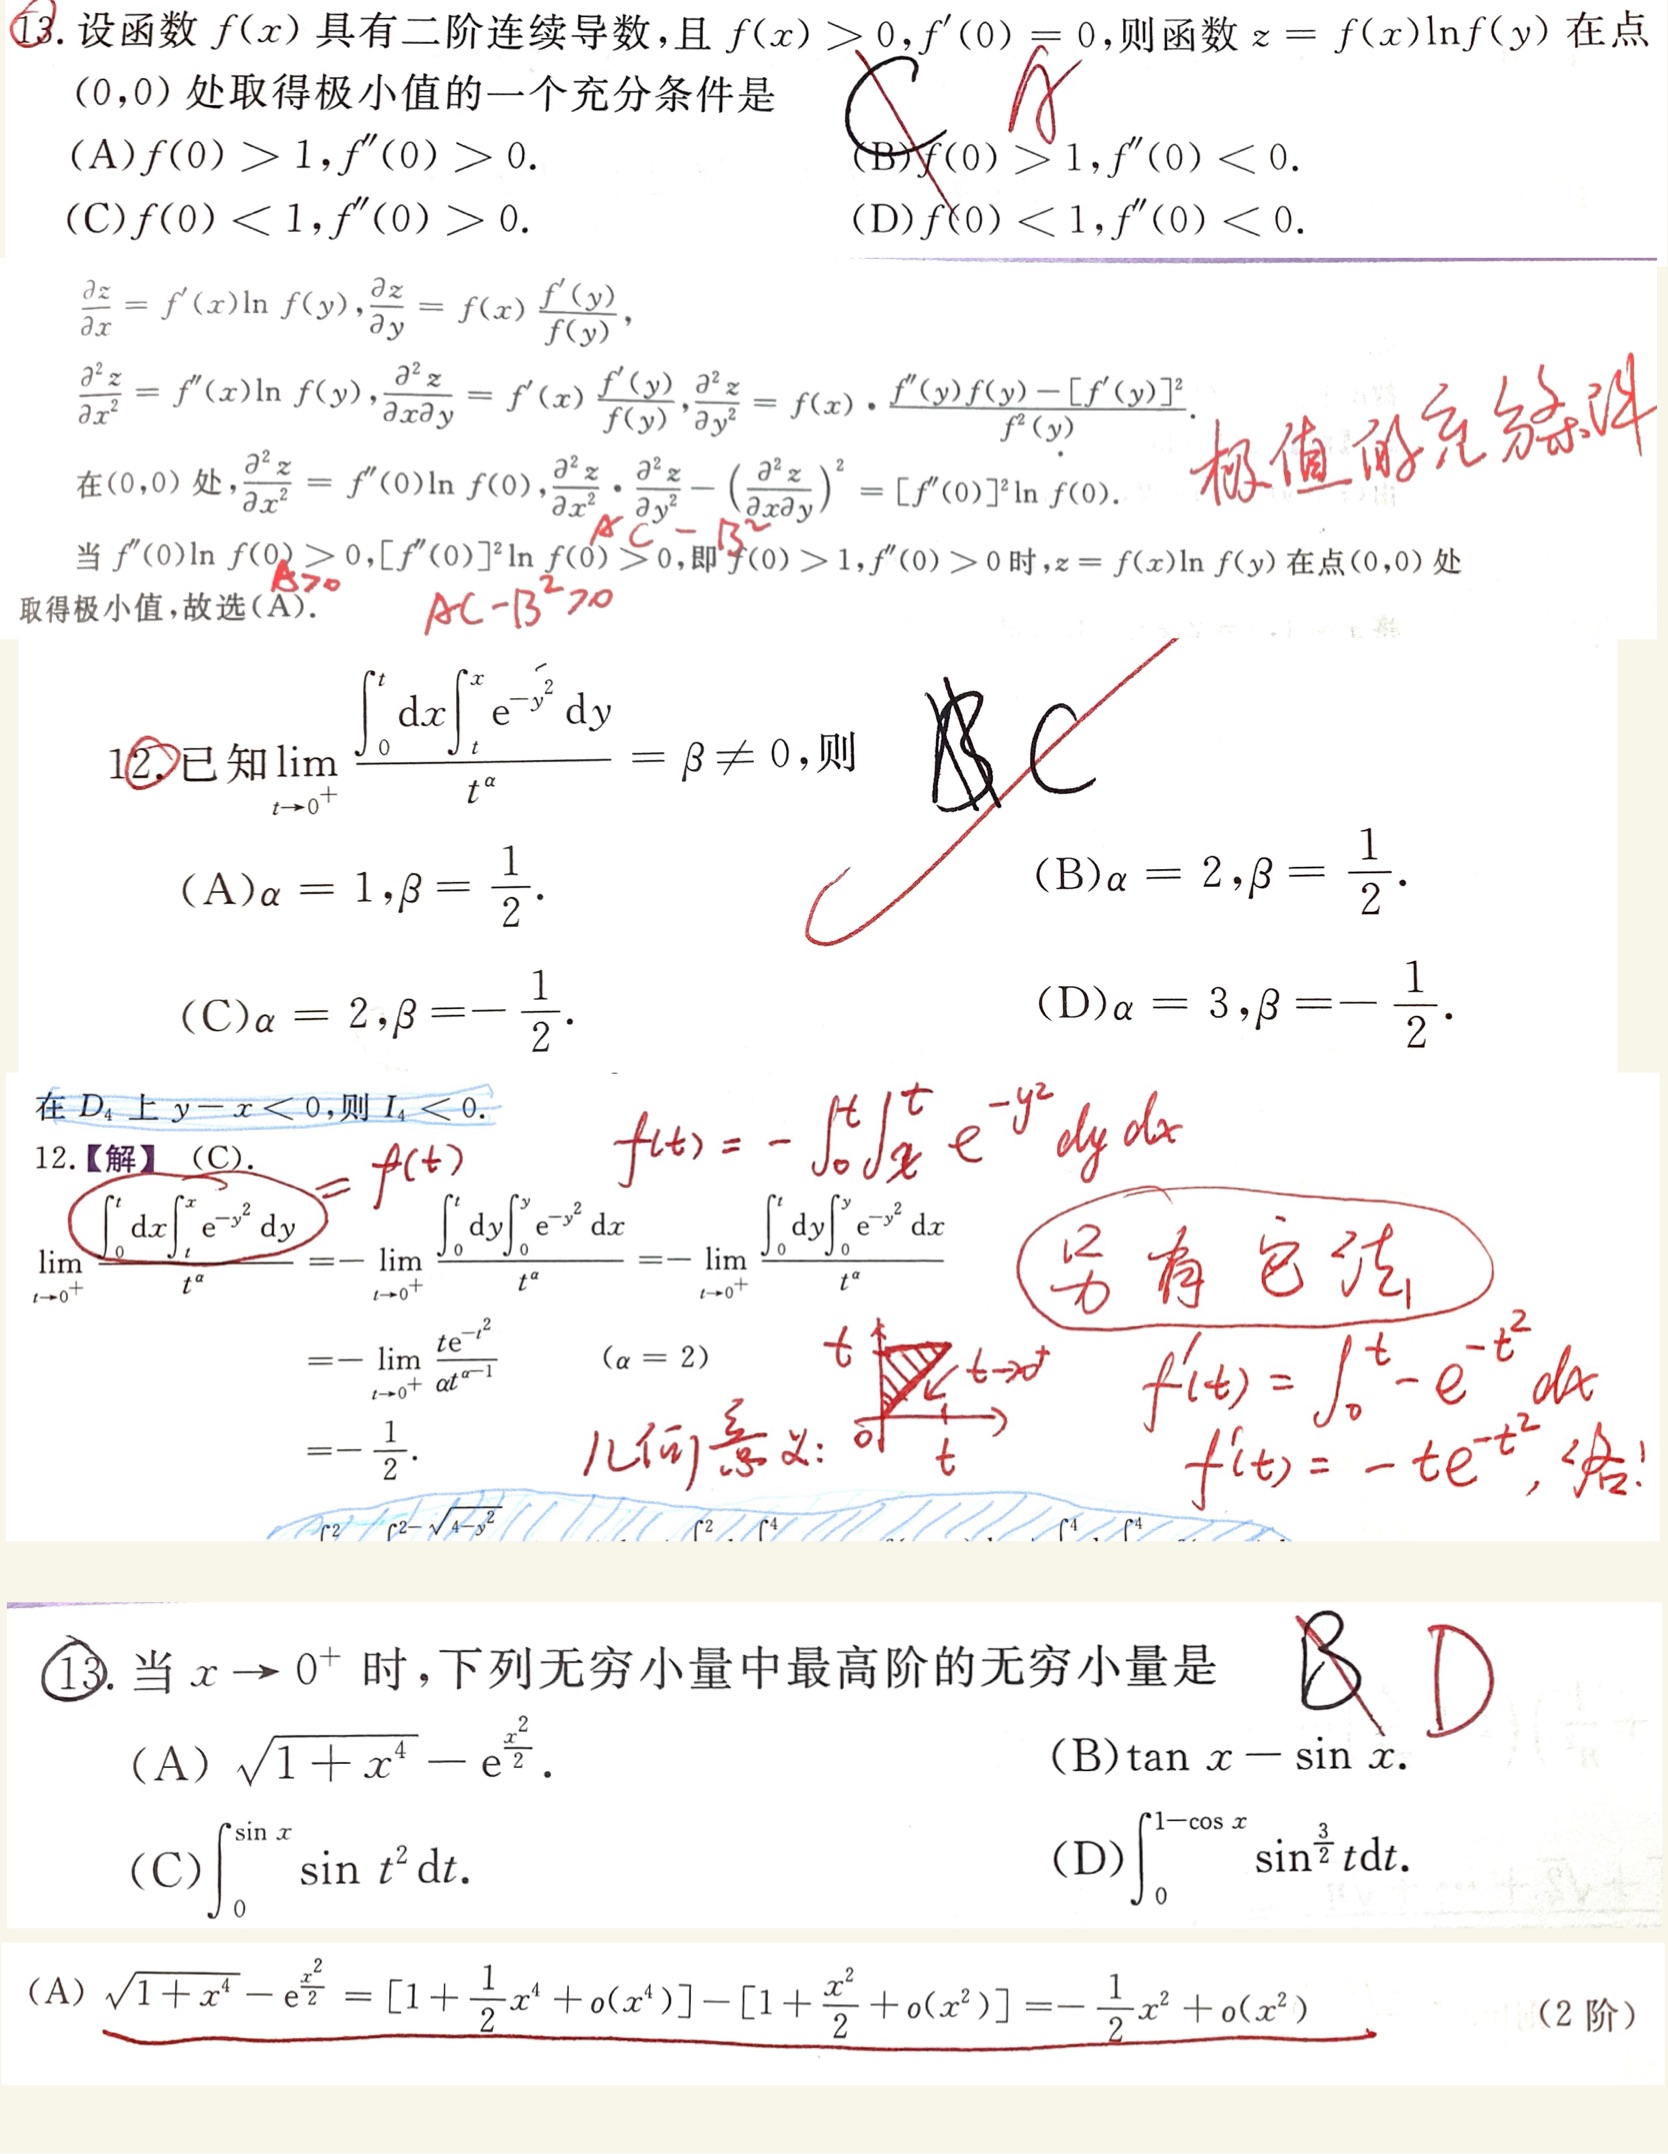 13. 设函数 f(x) 具有二阶连续导数,且 f(x) > 0, f′(0) = 0,则函数 z = f(x)lnf(y) 在点
(0,0) 处取得极小值的一个充分条件是
C A
(A) f(0) > 1, f″(0) > 0. (B) f(0) > 1, f″(0) < 0.
(C) f(0) < 1, f″(0) > 0. (D) f(0) < 1, f″(0) < 0.
∂z/∂x = f′(x)ln f(y), ∂z/∂y = f(x) f′(y)/f(y),
∂²z/∂x² = f″(x)ln f(y), ∂²z/∂x∂y = f′(x) f′(y)/f(y), ∂²z/∂y² = f(x) · (f″(y)f(y) − [f′(y)]²)/f²(y).
极值的充分条件
在(0,0) 处, ∂²z/∂x² = f″(0)ln f(0), ∂²z/∂x² · ∂²z/∂y² − (∂²z/∂x∂y)² = [f″(0)]²ln f(0).
AC − B²
当 f″(0)ln f(0) > 0, [f″(0)]²ln f(0) > 0, 即 f(0) > 1, f″(0) > 0 时, z = f(x)ln f(y) 在点(0,0) 处
A>0
取得极小值,故选(A).
AC−B²>0
12. 已知 lim_{t→0⁺} (∫₀ᵗ dx ∫ₜˣ e^{−y²} dy)/t^α = β ≠ 0,则
B C
(A) α = 1, β = 1/2. (B) α = 2, β = 1/2.
(C) α = 2, β = − 1/2. (D) α = 3, β = − 1/2.
在 D₄ 上 y − x < 0,则 I₄ < 0.
12.【解】 (C).
= f(t)
f(t) = − ∫₀ᵗ∫ₓᵗ e^{−y²} dy dx
lim_{t→0⁺} (∫₀ᵗ dx ∫ₜˣ e^{−y²} dy)/t^α = − lim_{t→0⁺} (∫₀ᵗ dy ∫₀ʸ e^{−y²} dx)/t^α = − lim_{t→0⁺} (∫₀ᵗ dy ∫₀ʸ e^{−y²} dx)/t^α
另有它法
= − lim_{t→0⁺} te^{−t²}/(αt^{α−1}) (α = 2)
t t→0⁺
f′(t) = ∫₀ᵗ − e^{−t²} dx
= − 1/2.
几何意义:
0 t
f′(t) = − te^{−t²}, 洛!
∫² ∫^{2−√(4−y²)} ∫² ∫⁴ ∫⁴ ∫⁴
13. 当 x → 0⁺ 时,下列无穷小量中最高阶的无穷小量是
B D
(A) √(1 + x⁴) − e^{x²/2}. (B) tan x − sin x.
(C) ∫₀^{sin x} sin t² dt. (D) ∫₀^{1−cos x} sin^{3/2} tdt.
(A) √(1 + x⁴) − e^{x²/2} = [1 + 1/2 x⁴ + o(x⁴)] − [1 + x²/2 + o(x²)] = − 1/2 x² + o(x²) (2 阶)